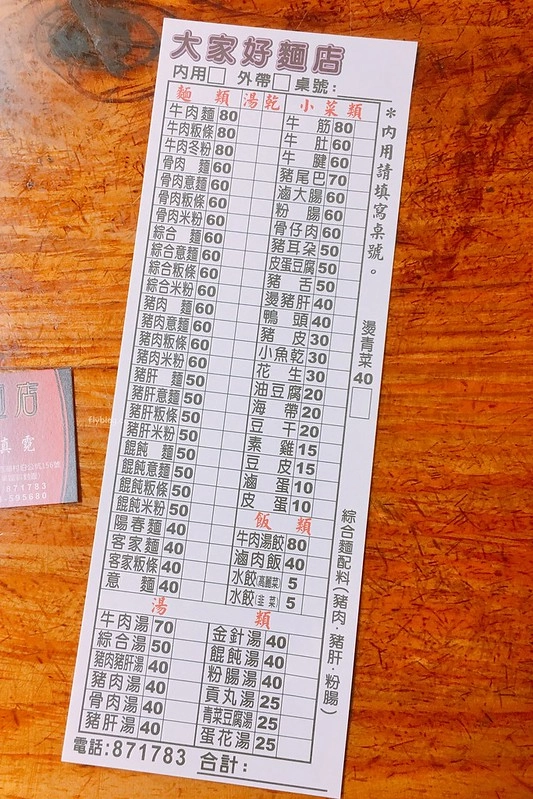 大家好麵店
內用□ 外帶□ 桌號：
麵類 湯 乾
牛肉麵 80
牛肉粄條 80
牛肉冬粉 80
骨肉麵 60
骨肉意麵 60
骨肉粄條 60
骨肉米粉 60
綜合麵 60
綜合意麵 60
綜合粄條 60
綜合米粉 60
豬肉麵 60
豬肉意麵 60
豬肉粄條 60
豬肉米粉 60
豬肝麵 50
豬肝意麵 50
豬肝粄條 50
豬肝米粉 50
餛飩麵 50
餛飩意麵 50
餛飩粄條 50
餛飩米粉 50
陽春麵 40
客家麵 40
客家粄條 40
意麵 40
小菜類
牛筋 80
牛肚 60
牛腱 60
豬尾巴 70
滷大腸 60
粉腸 60
骨仔肉 60
豬耳朵 50
皮蛋豆腐 50
豬舌 50
燙豬肝 40
鴨頭 40
豬皮 30
小魚乾 30
花生 30
油豆腐 20
海帶 20
豆干 20
素雞 15
豆皮 15
滷蛋 10
皮蛋 10
飯類
牛肉湯餃 80
滷肉飯 40
水餃(高麗菜) 5
水餃(韭菜) 5
湯類
牛肉湯 70
綜合湯 50
豬肉豬肝湯 40
豬肉湯 40
骨肉湯 40
豬肝湯 40
金針湯 40
餛飩湯 40
粉腸湯 40
貢丸湯 25
青菜豆腐湯 25
蛋花湯 25
電話：871783 合計：
＊內用請填寫桌號。
燙青菜 40 □
綜合麵配料(豬肉．豬肝．粉腸)
店
871783
595680